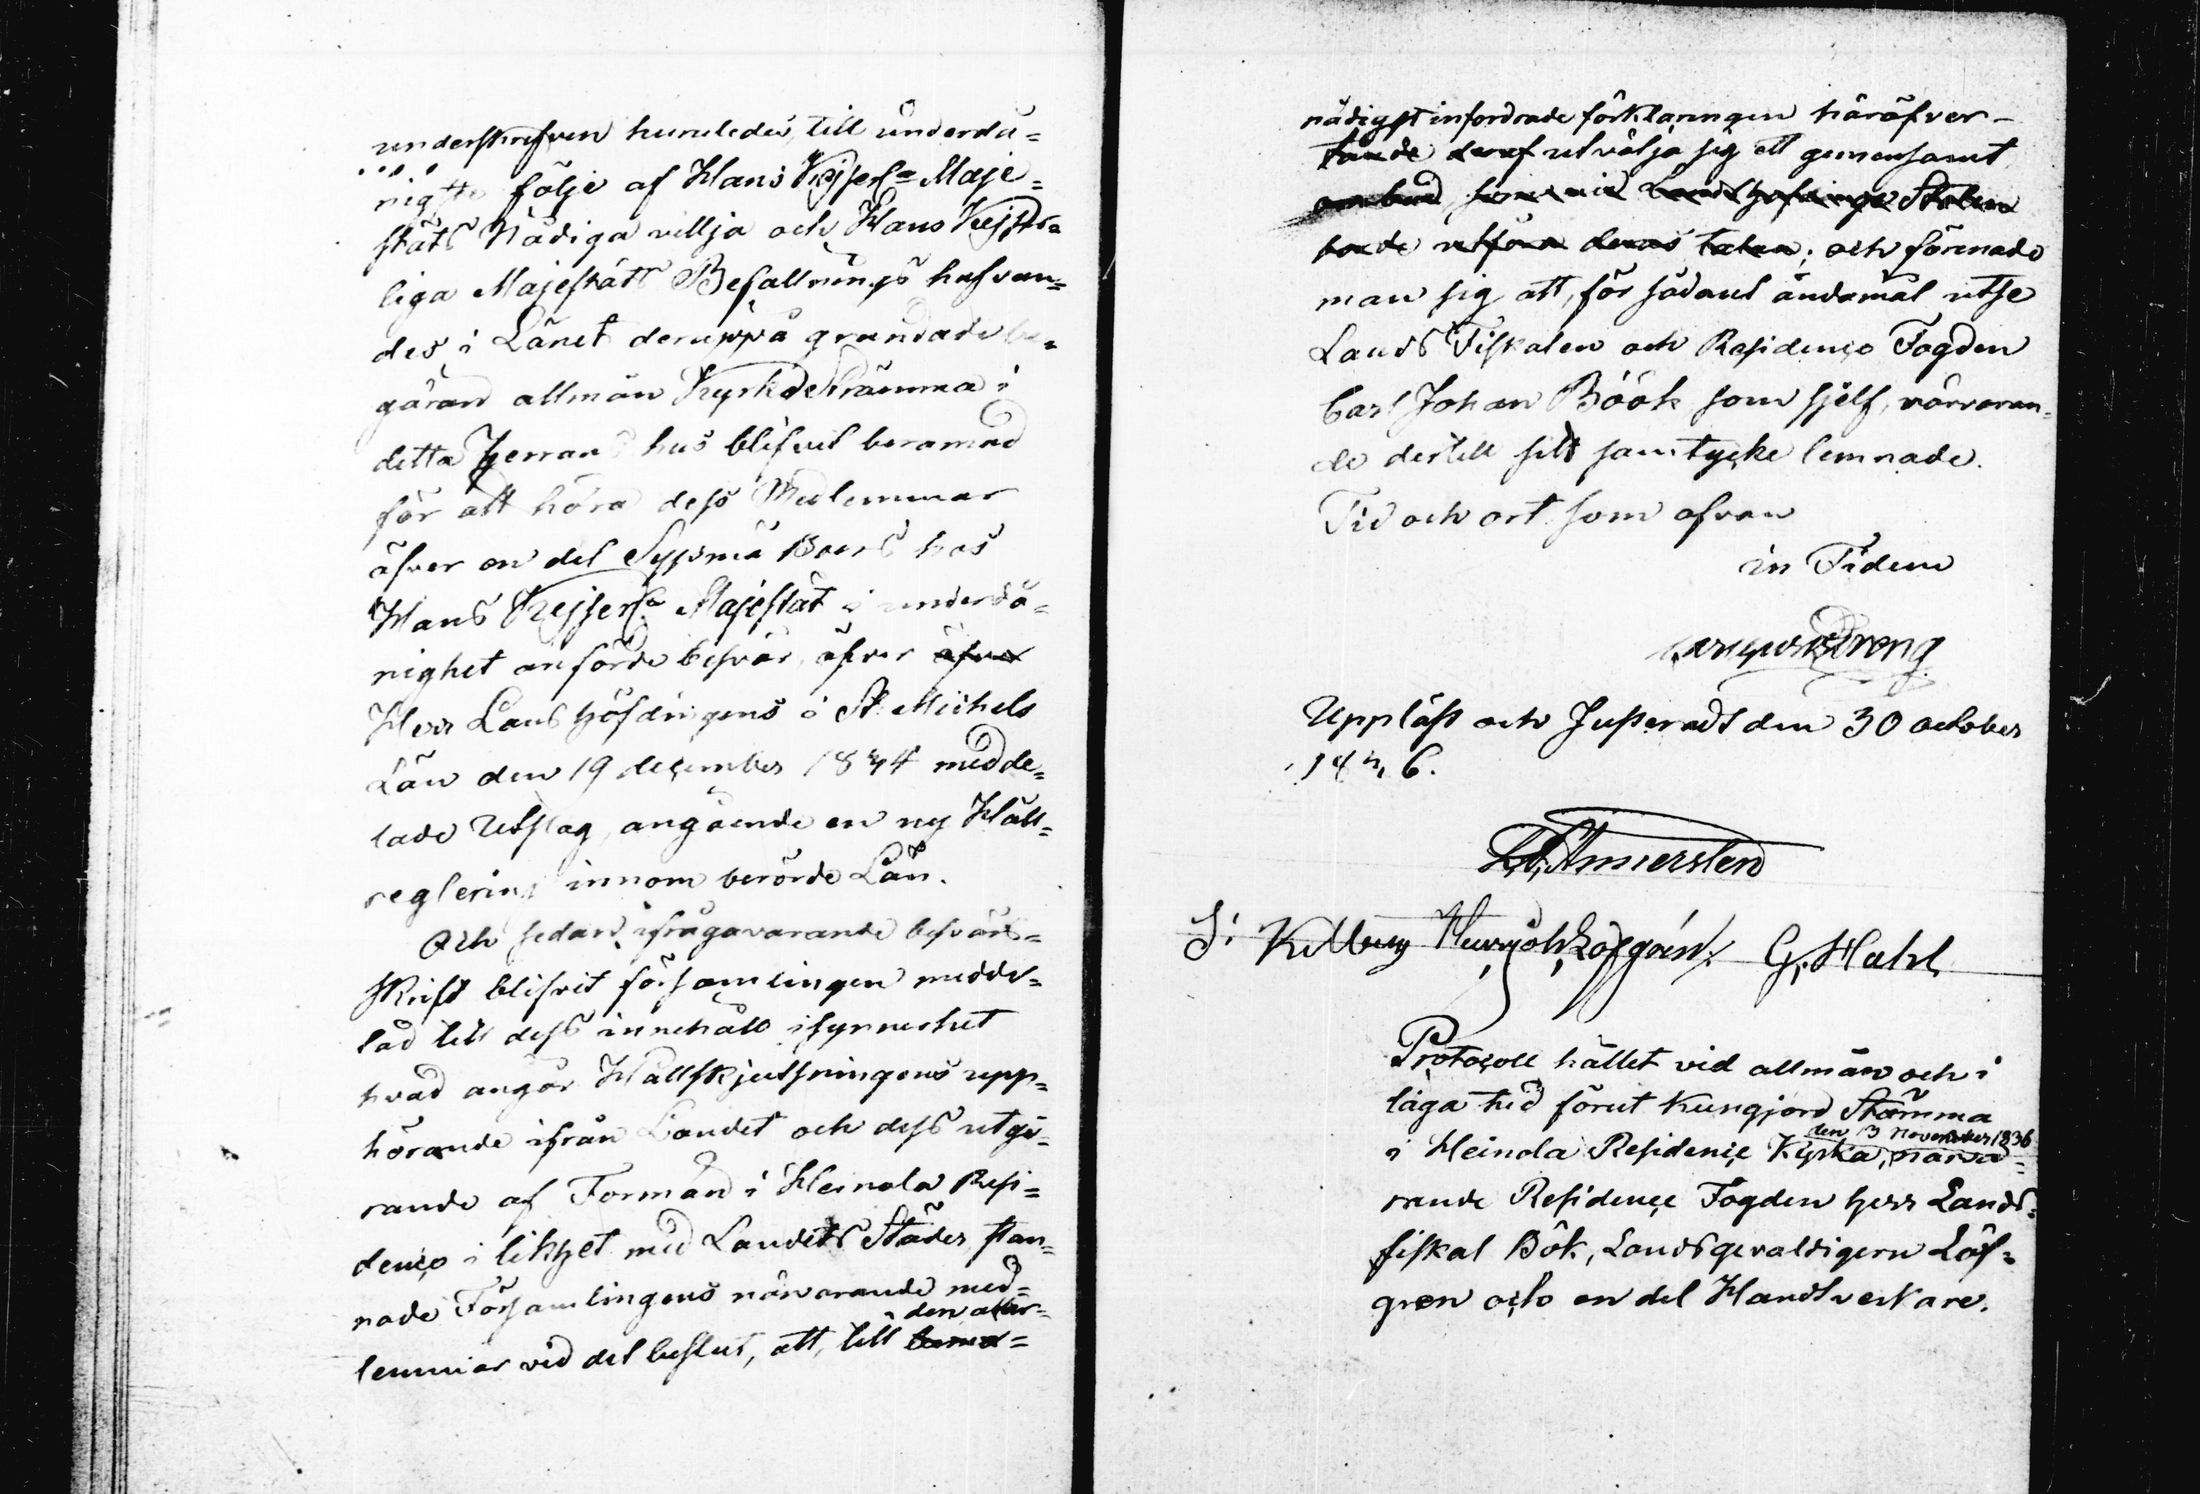 underskrifven huruledis, till underdå=
nigste följe af Hans Kejserl:a Maje=
stäts Nådiga villja och Hans Kejser=
liga Majestäts Befallnings hafvan=
des i Länet deruppå grundade be=
gäran allmän Kyrkostämma i
detta Herrans hus blifvit beramad
för att höra dess Medlemmar
öfver en del Sysmä Boers hos
Hans Kejserl:a Majestät i underdå=
nighet anförde besvär, öfver öfver
Herr Landshöfdingens i St. Michels
Län den 19 december 1834 medde=
lade Utslag, angående en ny Håll=
reglering innom berörde Län.
Och sedan ifrågavarande besvärs=
skrift blifvit församlingen medde=
lad till dess innehåll isynnerhet
hvad angår Hållskjutsningens upp=
hörande ifrån Landet och dess utgö=
rande af Formän i Heinola Resi=
dence i likhet med Landets Städer, stan=
nade Församlingens närvarande med=
den aller=
lemmar vid det beslut, att, till bemä=
nådigst infordrade förklaringen häröfver –
tände deraf utvälja sig ett gemensamt
ombud, som vid Landshöfdinge
borde utföra deras talan; och förenade
man sig att, för sådant ändamål utse
Lands Fiskalen och Residence Fogden
Carl Johan Böök som sjelf, närvaran=
de dertill sitt samtycke lemnade.
Tid och ort som ofvan
in Fidem
Uppläst och Justeradt den 30 october
1836.
G. Hahl
Protocoll hållet vid allmän och i
laga tid förut kungjord Stämma
den 13 November 1836
i Heinola Residence Kyrka, närva=
rande Residence Fogden Herr Lands=
fiskal Bök, Landsgevaldigern Löf=
gren och en del Handtverkare.